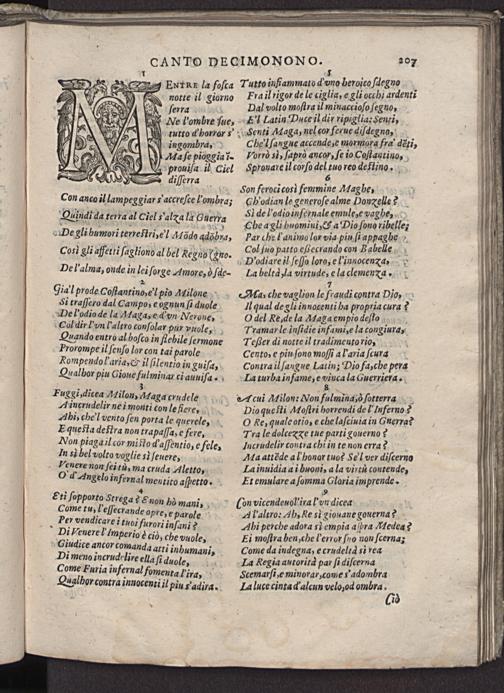 CANTO DECIMONONO.
207
1
MENTRE la fosca
notte il giorno
serra
Ne l'ombre sue,
tutto d'horror s'
ingombra,
Ma se pioggia ī-
prouisa il Ciel
disserra
Con anco il lampeggiar s'accresce l'ombra;
Quindi da terra al Ciel s'alza la Guerra
De gli humori terrestri, e'l Mōdo adōbra,
Così gli affetti sagliono al bel Regno
De l'alma, onde in lei sorge Amore, ò sde- (gno.
2
Gia'l prode Costantino, e'l pio Milone
Si trassero dal Campo, e ognun si duole
De l'odio de la Maga, e d'vn Nerone,
Col dir l'vn l'altro consolar pur vuole,
Quando entro al bosco in flebile sermone
Prorompe il senso lor con tai parole
Rompendo l'aria, & il silentio in guisa,
Qualhor piu Gioue fulminar ci auuisa.
3
Fuggi, dicea Milon, Maga crudele
A incrudelir ne i monti con le fiere,
Ahi, che'l vento sen porta le querele,
E questa destra non trapassa, e fere,
Non piaga il cor misto d'assentio, e fele,
In sì bel volto voglie sì seuere,
Venere non sei tù, ma cruda Aletto,
O' d'Angelo infernal mentito aspetto.
4
Eti sopporto Strega? E non hò mani,
Come tu, l'essecrande opre, e parole
Per vendicare i tuoi furori insani?
Di Venere l'Imperio è ciò, che vuole,
Giudice ancor comanda atti inhumani,
Di meno incrudelire ella si duole,
Come Furia infernal fomenta l'ira,
Qualhor contra innocenti il piu s'adira.
5
Tutto infiammato d'vno heroico sdegno
Fra il rigor de le ciglia, e gli occhi ardenti
Dal volto mostra il minaccioso segno,
E'l Latin Duce il dir ripiglia: Senti,
Senti Maga, nel cor ferue disdegno,
Che'l sangue accende, e mormora fra' dēti,
Vorrò sì, saprò ancor, se io Costantino,
Spronare il corso del tuo reo destino.
6
Son feroci così femmine Maghe,
Ch'odian le generose alme Donzelle?
Sì de l'odio infernale emule, e vaghe,
Che a gli huomini, & a 'Dio sono ribelle;
Par che l'animo lor via piu si appaghe
Col suo patto essecrando con Babelle
D'odiare il sesso loro, e l'innocenza,
La beltà, la virtude, e la clemenza.
7
Ma, che vaglion le fraudi contra Dio,
Il qual de gli innocenti ha propria cura?
O del Rè, de la Maga empio desto
Tramar le insidie infami, e la congiura,
Tesser di notte il tradimento rio,
Cento, e piu sono mossi a l'aria scura
Contra il sangue Latin; 'Dio fa, che pera
La turba infame, e viuca la Guerriera.
8
A cui Milon: Non fulmina, ò sotterra
Dio questi Mostri horrendi de l'Inferno?
O Re, quale otio, e che lasciuia in Guerra?
Tra le dolcezze tue parti gouerno?
Incrudelir contra chi in te non erra?
Ma attēde a l'honor tuo? Se'l ver discerno
La inuidia a i buoni, a la virtù contende,
Et emulare a somma Gloria imprende.
9
Con vicendeuol'ira l'vn dicea
A l'altro: Ah, Re sì giouane gouerna?
Ahi perche adora sì empia aspra Medea?
Ei mostra ben, che l'error suo non scerna;
Come da indegna, e crudeltà sì rea
La Regia autorità par si discerna
Scemarsi, e minorar, come s'adombra
La luce cinta d'alcun velo, od ombra.
Ciò